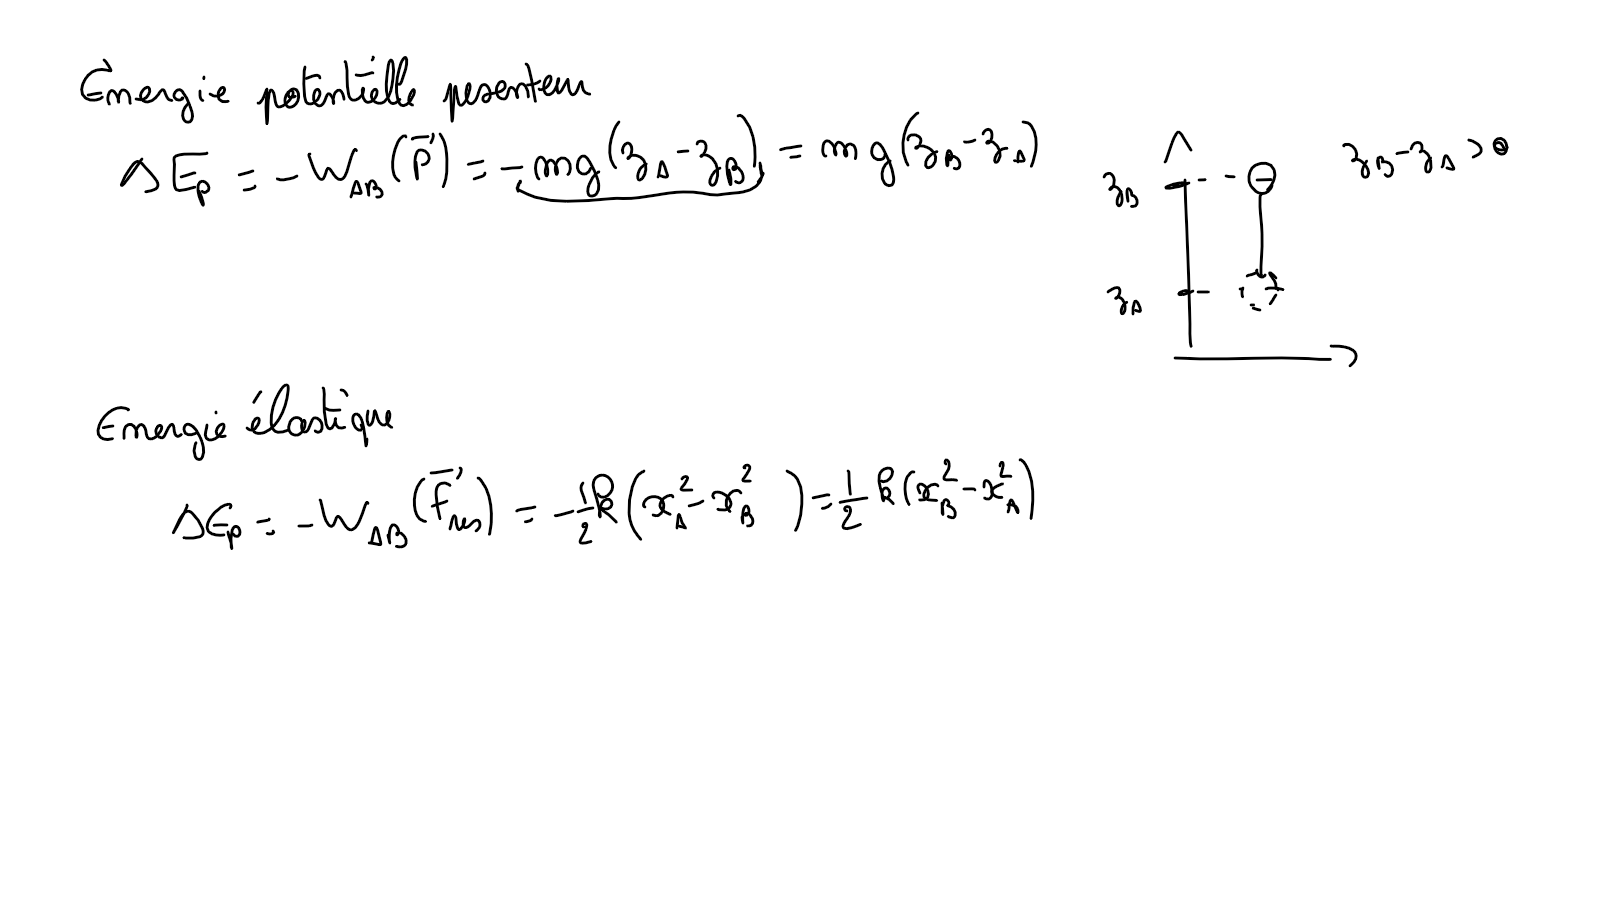 Énergie potentielle pesanteur
ΔEp = -W_AB(P⃗) = -mg(z_A - z_B) = mg(z_B - z_A)
z_B - z_A > 0
z_B
z_A
Energie élastique
ΔEp = -W_AB(F⃗_res) = -1/2 k(x_A² - x_B²) = 1/2 k(x_B² - x_A²)